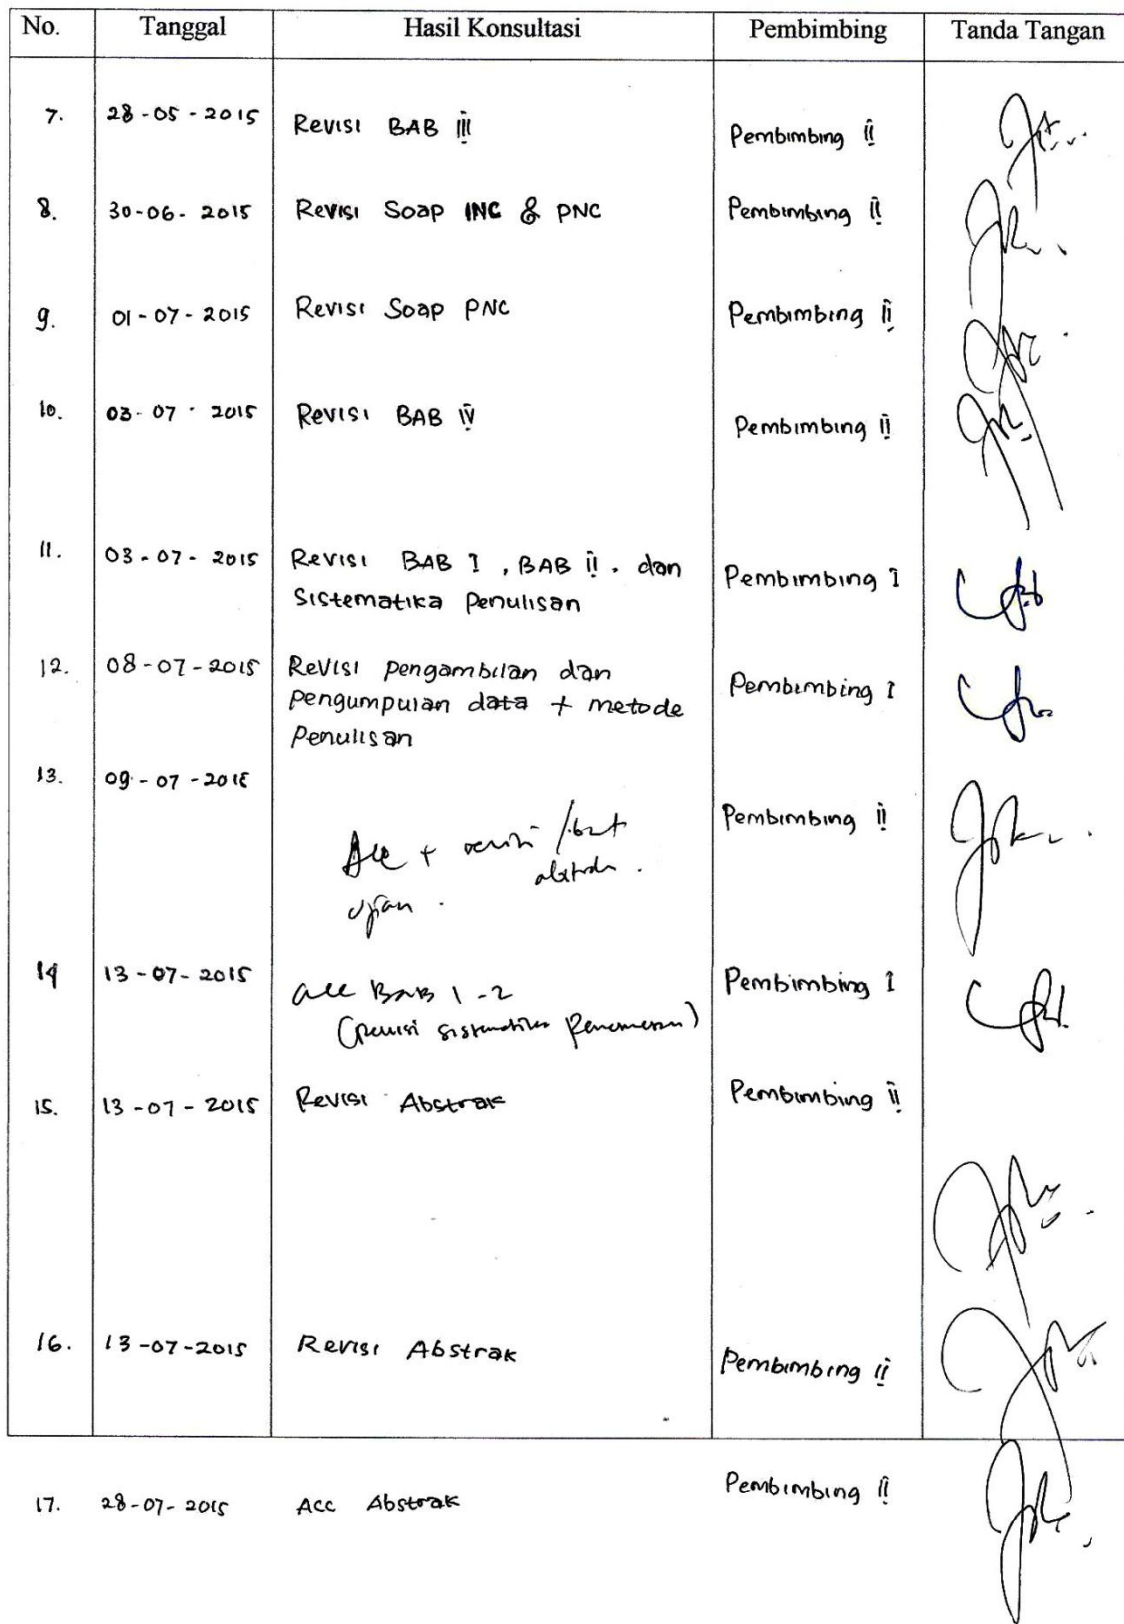 No. Tanggal Hasil Konsultasi Pembimbing Tanda Tangan
7. 28-05-2015 Revisi BAB III Pembimbing II
8. 30-06-2015 Revisi Soap INC & PNC Pembimbing II
9. 01-07-2015 Revisi Soap PNC Pembimbing II
10. 03-07-2015 Revisi BAB IV Pembimbing II
11. 03-07-2015 Revisi BAB I, BAB II, dan Pembimbing I
Sistematika Penulisan
12. 08-07-2015 Revisi pengambilan dan Pembimbing I
pengumpulan data + metode
Penulisan
13. 09-07-2015 Pembimbing II
Acc + revisi
ujian.
14 13-07-2015 acc BAB 1-2 Pembimbing I
(revisi sistematika Penomoran)
15. 13-07-2015 Revisi Abstrak Pembimbing II
16. 13-07-2015 Revisi Abstrak Pembimbing II
17. 28-07-2015 Acc Abstrak Pembimbing II